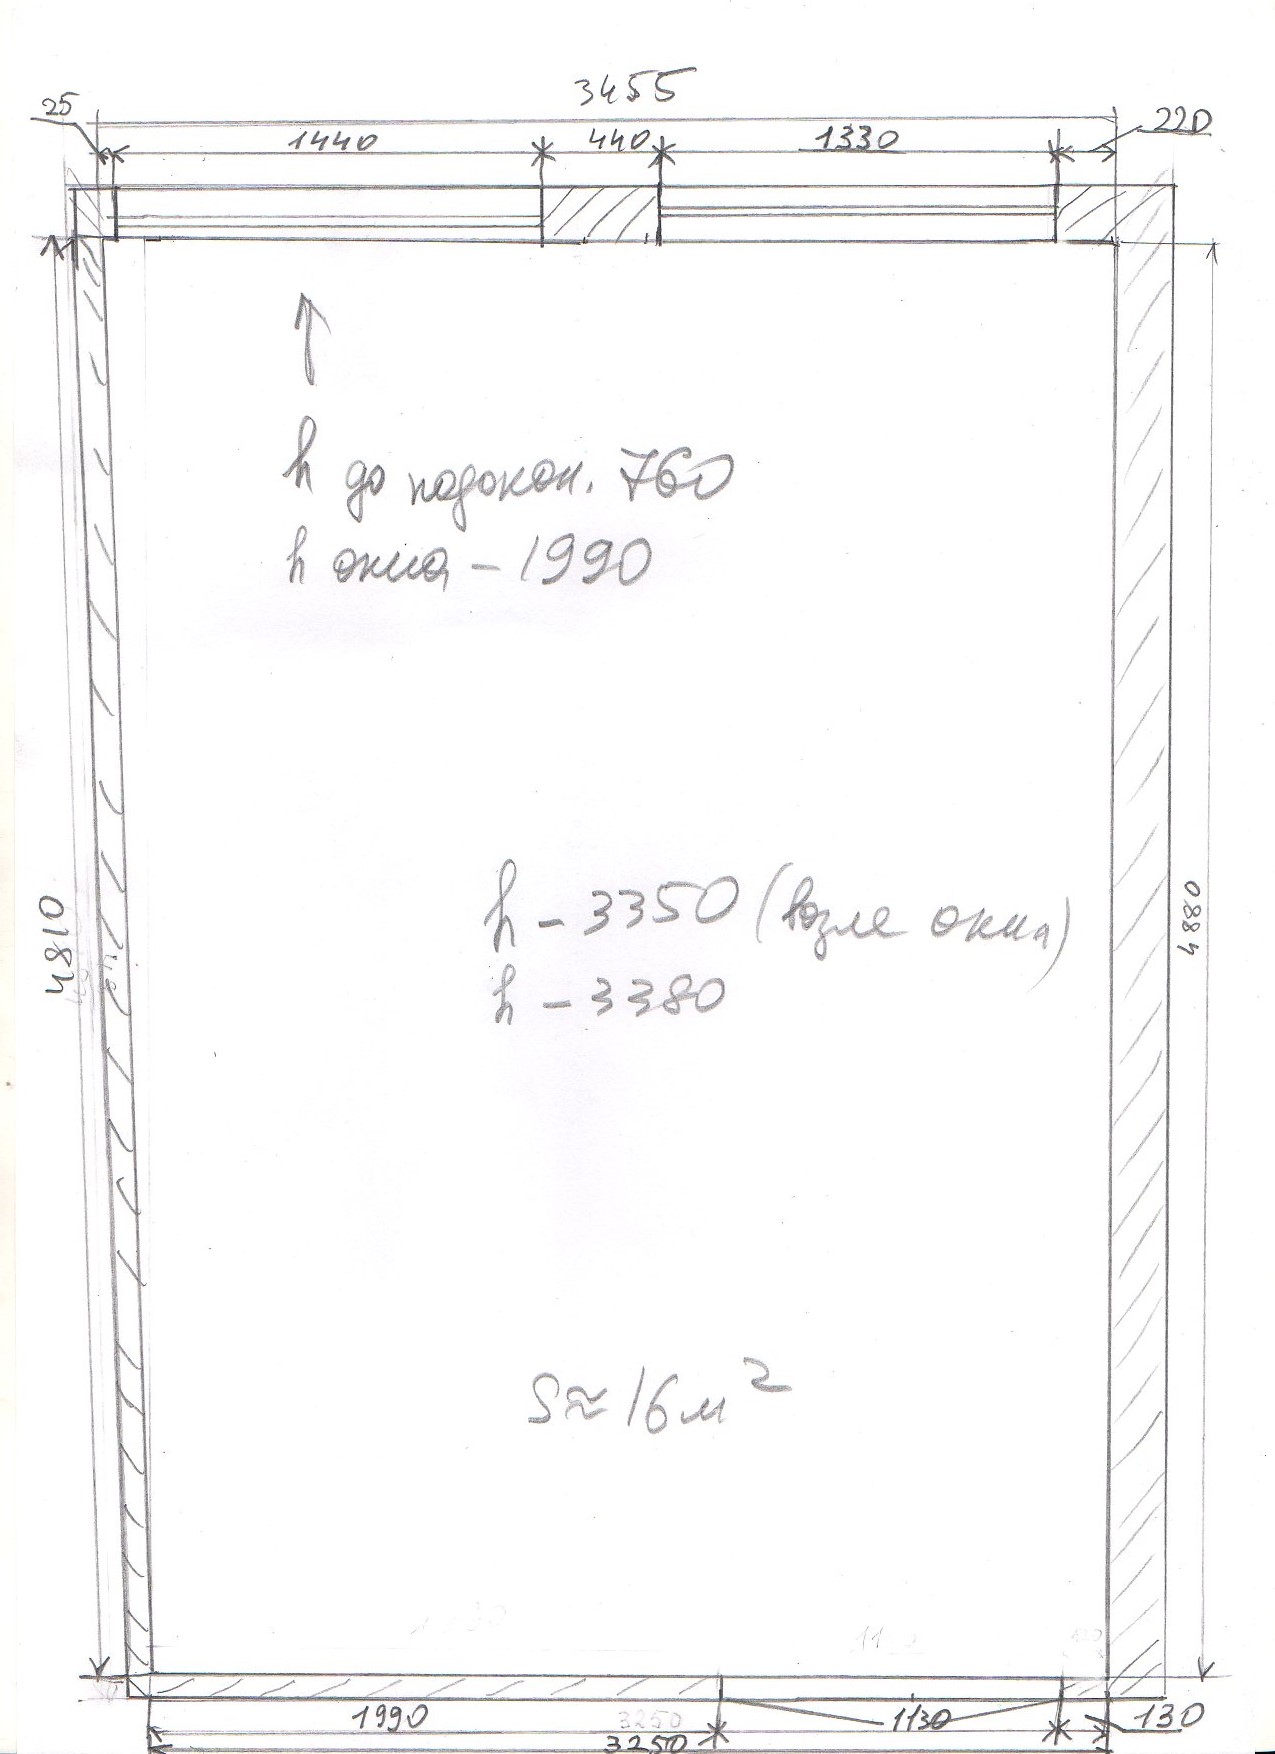 3455
25
1440
440
1330
220
h до подокон. 760
h окна – 1990
h – 3350 (возле окна)
h – 3380
4810
4880
S≈16м²
1990
3250
1130
130
3250